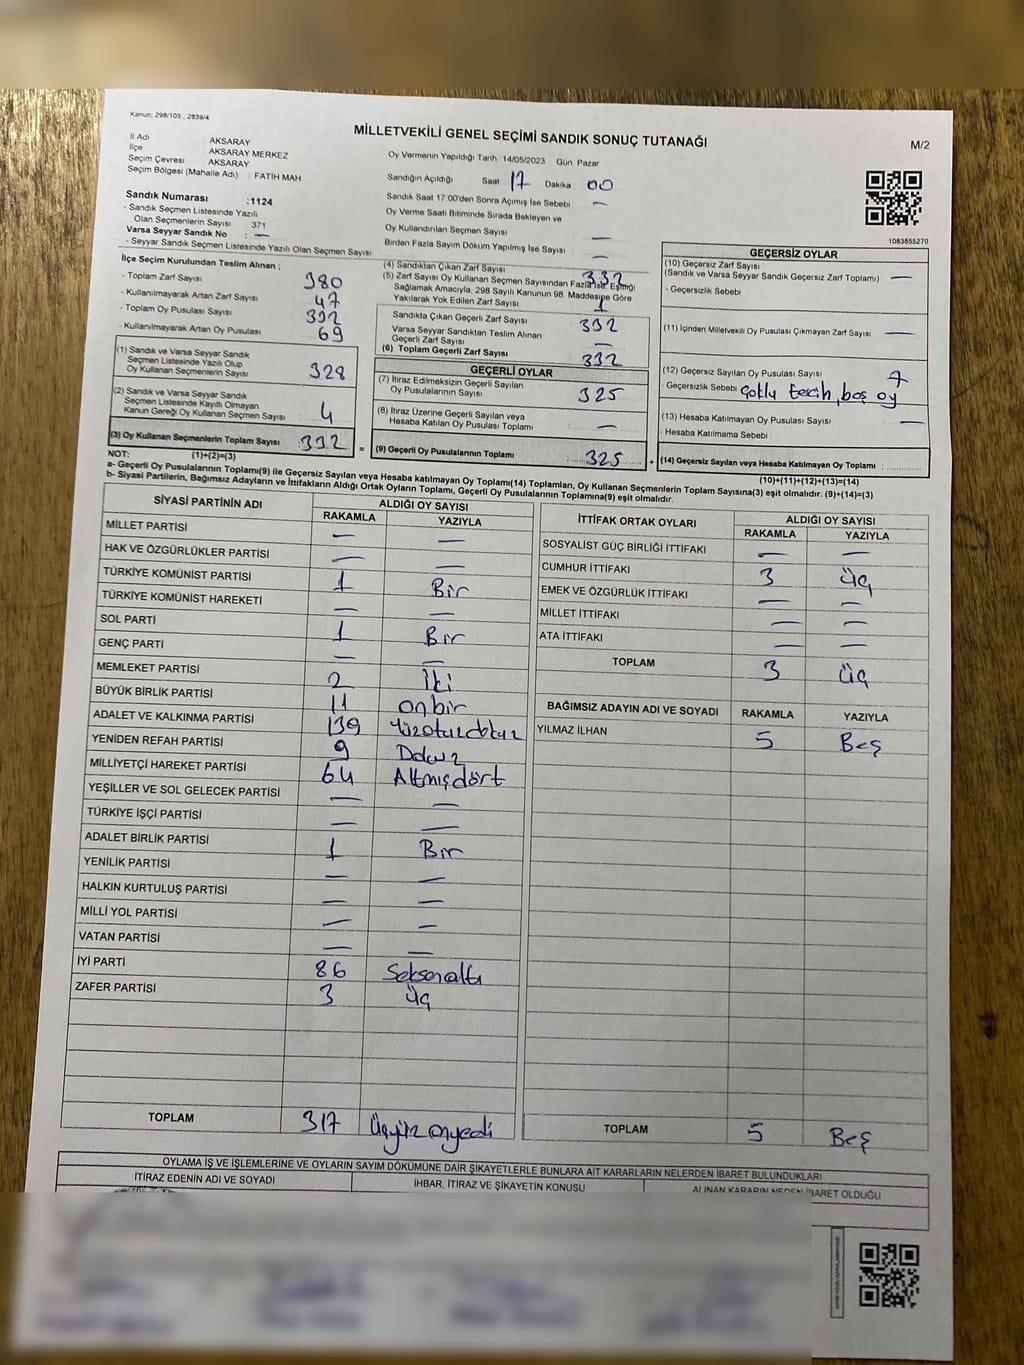 Kanun: 298/105 , 2839/4
MİLLETVEKİLİ GENEL SEÇİMİ SANDIK SONUÇ TUTANAĞI
M/2
İl Adı : AKSARAY
İlçe : AKSARAY MERKEZ
Seçim Çevresi : AKSARAY
Seçim Bölgesi (Mahalle Adı) : FATİH MAH.
Oy Vermenin Yapıldığı Tarih : 14/05/2023 Gün Pazar
Sandığın Açıldığı Saat 17 Dakika 00
Sandık Saat 17.00'den Sonra Açımış İse Sebebi —
Oy Verme Saati Bitiminde Sırada Bekleyen ve
Oy Kullandırılan Seçmen Sayısı —
Birden Fazla Sayım Döküm Yapılmış İse Sayısı —
1083855270
Sandık Numarası :1124
- Sandık Seçmen Listesinde Yazılı
Olan Seçmenlerin Sayısı : 371
Varsa Seyyar Sandık No : —
- Seyyar Sandık Seçmen Listesinde Yazılı Olan Seçmen Sayısı
İlçe Seçim Kurulundan Teslim Alınan ;
- Toplam Zarf Sayısı 380
- Kullanılmayarak Artan Zarf Sayısı 47
- Toplam Oy Pusulası Sayısı 392
- Kullanılmayarak Artan Oy Pusulası 69
(1) Sandık ve Varsa Seyyar Sandık
Seçmen Listesinde Yazılı Olup
Oy Kullanan Seçmenlerin Sayısı : 328
(2) Sandık ve Varsa Seyyar Sandık
Seçmen Listesinde Kayıtlı Olmayan
Kanun Gereği Oy Kullanan Seçmen Sayısı : 4
(3) Oy Kullanan Seçmenlerin Toplam Sayısı : 332
(4) Sandıktan Çıkan Zarf Sayısı 332
(5) Zarf Sayısı Oy Kullanan Seçmen Sayısından Fazla İse, Eşitliği
Sağlamak Amacıyla, 298 Sayılı Kanunun 98. Maddesine Göre
Yakılarak Yok Edilen Zarf Sayısı 1
Sandıkta Çıkan Geçerli Zarf Sayısı 332
Varsa Seyyar Sandıktan Teslim Alınan
Geçerli Zarf Sayısı —
(6) Toplam Geçerli Zarf Sayısı 332
GEÇERLİ OYLAR
(7) İtiraz Edilmeksizin Geçerli Sayılan
Oy Pusulalarının Sayısı 325
(8) İtiraz Üzerine Geçerli Sayılan veya
Hesaba Katılan Oy Pusulası Toplamı : —
(9) Geçerli Oy Pusulalarının Toplamı : 325
GEÇERSİZ OYLAR
(10) Geçersiz Zarf Sayısı
(Sandık ve Varsa Seyyar Sandık Geçersiz Zarf Toplamı) : —
- Geçersizlik Sebebi :
(11) İçinden Milletvekili Oy Pusulası Çıkmayan Zarf Sayısı : —
(12) Geçersiz Sayılan Oy Pusulası Sayısı : 7
- Geçersizlik Sebebi : çoklu tecih, boş oy
(13) Hesaba Katılmayan Oy Pusulası Sayısı : —
- Hesaba Katılmama Sebebi :
(14) Geçersiz Sayılan veya Hesaba Katılmayan Oy Toplamı :
NOT: (1)+(2)=(3)
(10)+(11)+(12)+(13)=(14)
a- Geçerli Oy Pusulalarının Toplamı(9) ile Geçersiz Sayılan veya Hesaba Katılmayan Oy Toplamı(14) Toplamları, Oy Kullanan Seçmenlerin Toplam Sayısına(3) eşit olmalıdır. (9)+(14)=(3)
b- Siyasi Partilerin, Bağımsız Adayların ve İttifakların Aldığı Ortak Oyların Toplamı, Geçerli Oy Pusulalarının Toplamına(9) eşit olmalıdır.
SİYASİ PARTİNİN ADI ALDIĞI OY SAYISI
RAKAMLA YAZIYLA
MİLLET PARTİSİ — —
HAK VE ÖZGÜRLÜKLER PARTİSİ — —
TÜRKİYE KOMÜNİST PARTİSİ 1 Bir
TÜRKİYE KOMÜNİST HAREKETİ — —
SOL PARTİ 1 Bir
GENÇ PARTİ — —
MEMLEKET PARTİSİ 2 İki
BÜYÜK BİRLİK PARTİSİ 11 onbir
ADALET VE KALKINMA PARTİSİ 139 Yüzotuzdokuz
YENİDEN REFAH PARTİSİ 9 Dokuz
MİLLİYETÇİ HAREKET PARTİSİ 64 Altmışdört
YEŞİLLER VE SOL GELECEK PARTİSİ — —
TÜRKİYE İŞÇİ PARTİSİ — —
ADALET BİRLİK PARTİSİ 1 Bir
YENİLİK PARTİSİ — —
HALKIN KURTULUŞ PARTİSİ — —
MİLLİ YOL PARTİSİ — —
VATAN PARTİSİ — —
İYİ PARTİ 86 Seksenaltı
ZAFER PARTİSİ 3 üç
TOPLAM 317 üçyüz onyedi
İTTİFAK ORTAK OYLARI ALDIĞI OY SAYISI
RAKAMLA YAZIYLA
SOSYALİST GÜÇ BİRLİĞİ İTTİFAKI — —
CUMHUR İTTİFAKI 3 üç
EMEK VE ÖZGÜRLÜK İTTİFAKI — —
MİLLET İTTİFAKI — —
ATA İTTİFAKI — —
TOPLAM 3 üç
BAĞIMSIZ ADAYIN ADI VE SOYADI RAKAMLA YAZIYLA
YILMAZ İLHAN 5 Beş
TOPLAM 5 Beş
OYLAMA İŞ VE İŞLEMLERİNE VE OYLARIN SAYIM DÖKÜMÜNE DAİR ŞİKAYETLERLE BUNLARA AİT KARARLARIN NELERDEN İBARET BULUNDUKLARI
İTİRAZ EDENİN ADI VE SOYADI
İHBAR, İTİRAZ VE ŞİKAYETİN KONUSU
ALINAN KARARIN NEDEN İBARET OLDUĞU